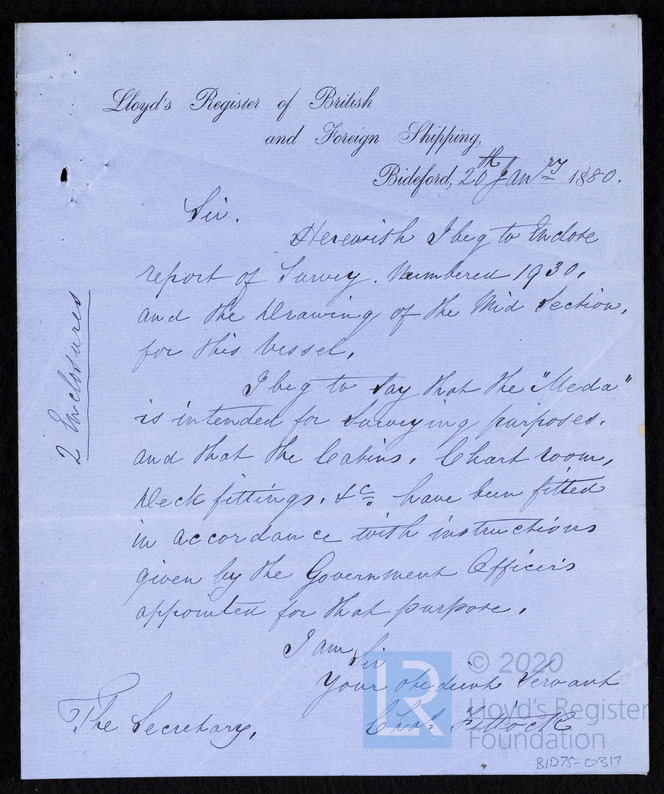 Lloyd's Register of British
and Foreign Shipping,
Bideford, 20th Janry 1880.
Sir.
Herewith I beg to Enclose
report of Survey. Numbered 1930,
and the Drawing of the Mid Section,
for this Vessel,
I beg to Say that the "Meda"
is intended for Surveying purposes.
and that the Cabins, Chart room,
Deck fittings, &c. have been fitted
in accordance with instructions
given by the Government Officers
appointed for that purpose.
I am Sir
Your obedient Servant
Chas
The Secretary,
2 Enclosures
LR
© 2020
Lloyd's Register
Foundation
BID75-0317